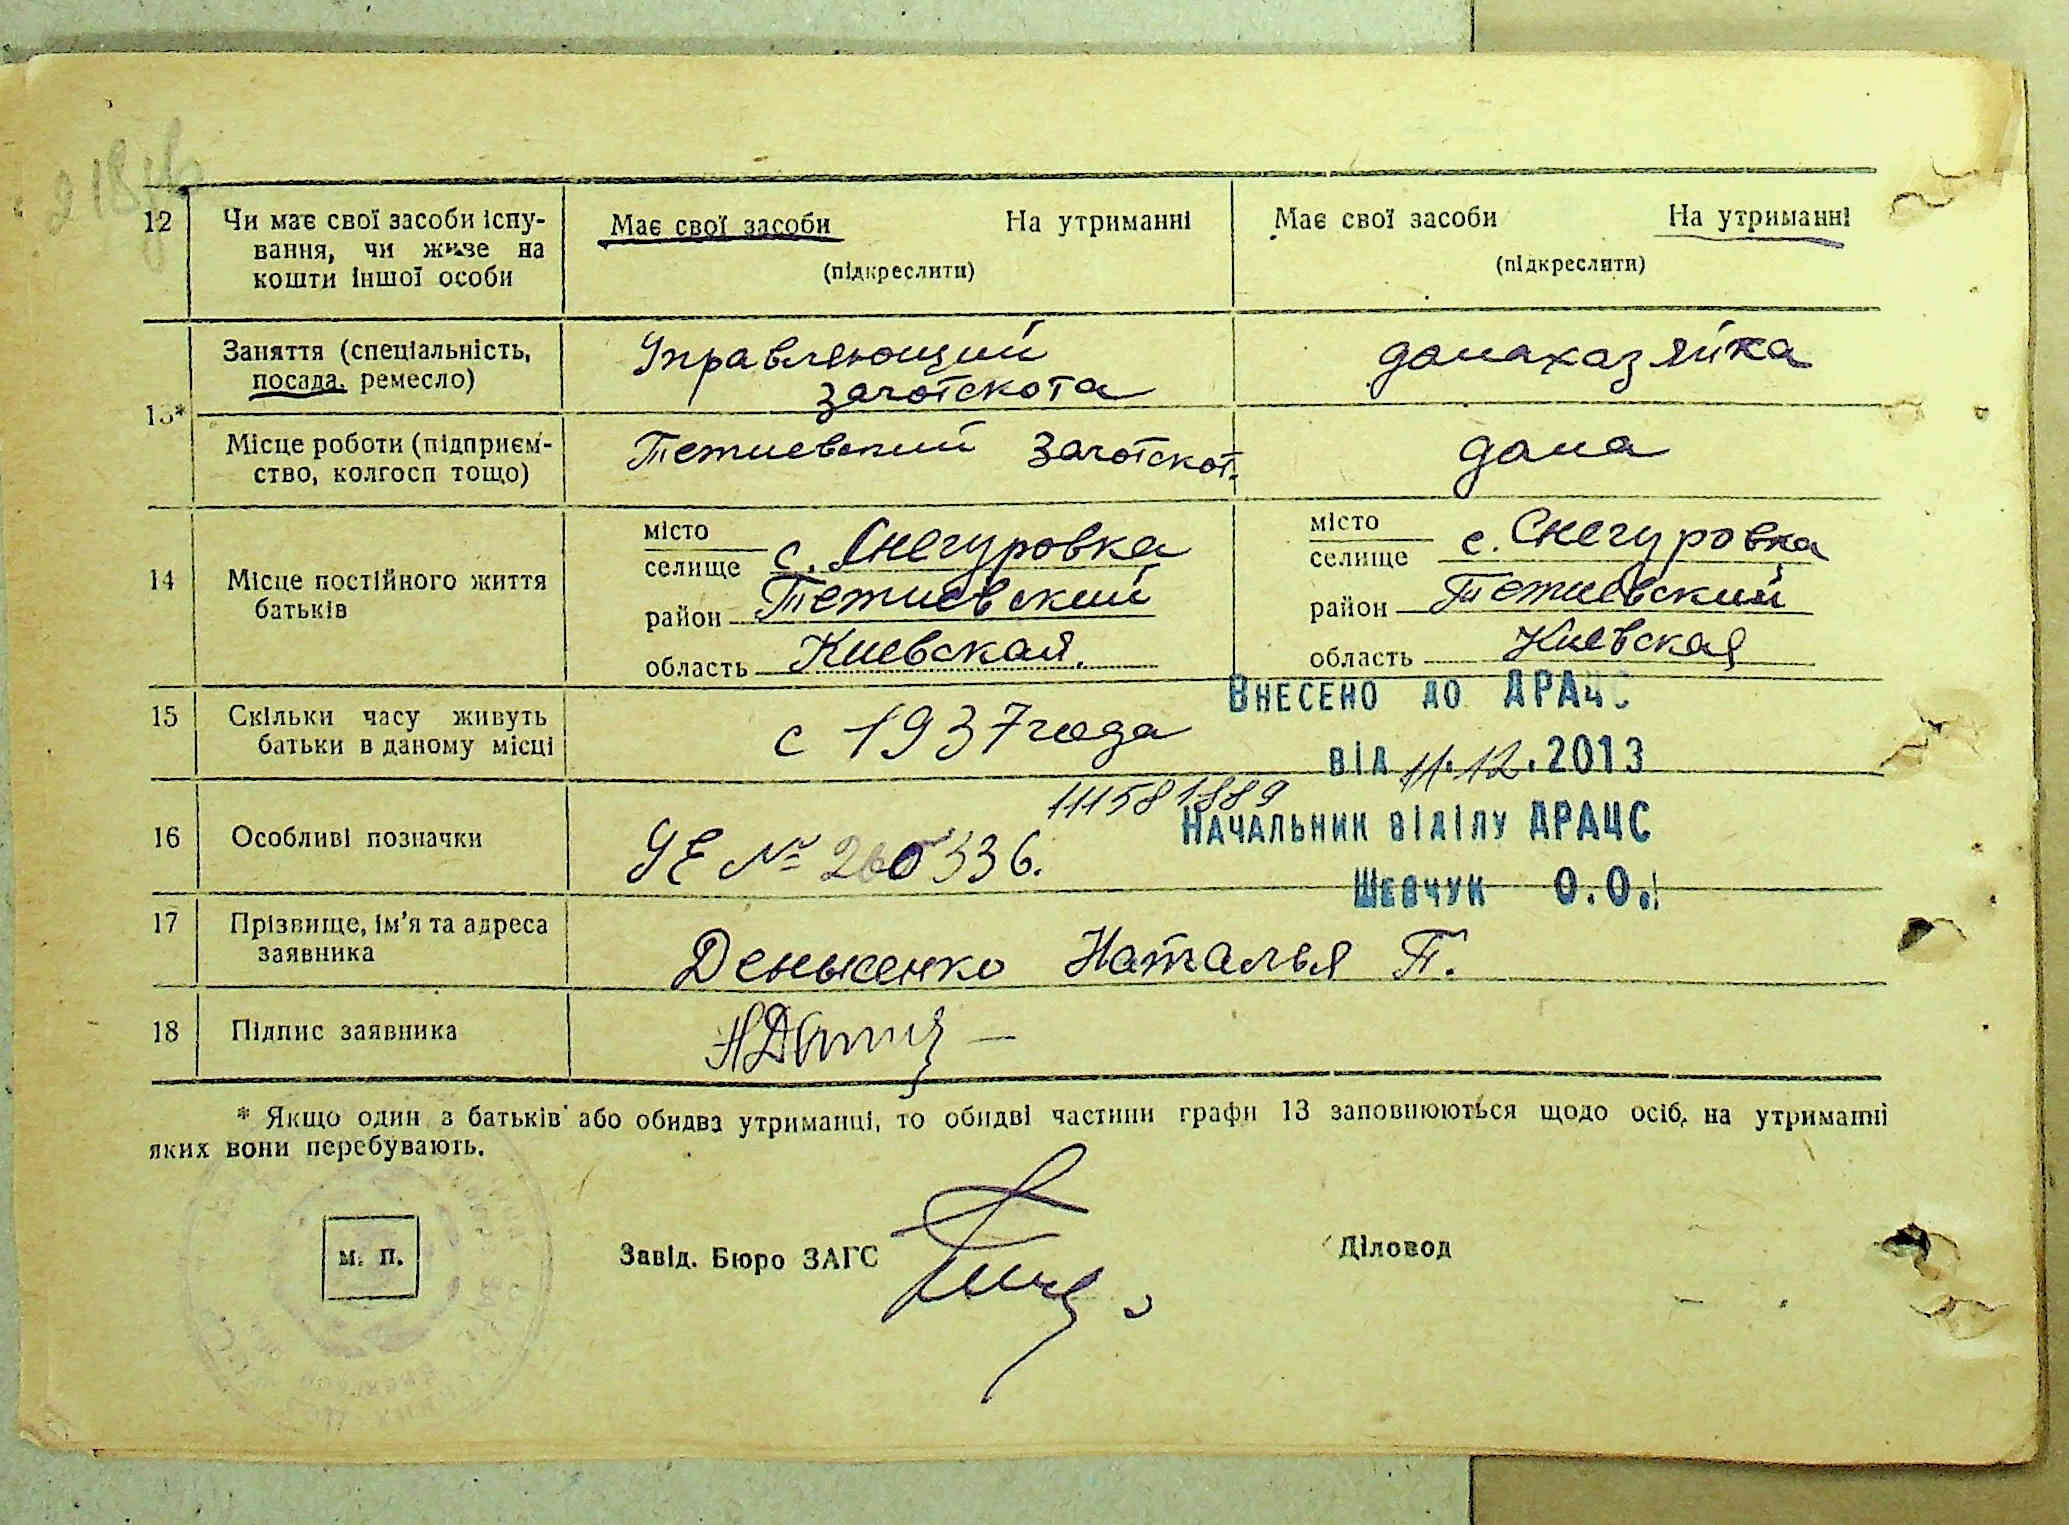 12 Чи має свої засоби існу-
вання, чи живе на
кошти іншої особи
Має свої засоби На утриманні
(підкреслити)
Має свої засоби На утриманні
(підкреслити)
13*
Заняття (спеціальність,
посада, ремесло)
Управляющий
заготскота
домахазяйка
Місце роботи (підприєм-
ство, колгосп тощо)
Тетиевский Заготскот.
дома
14 Місце постійного життя
батьків
місто
селище с. Снегуровка
район Тетиевский
область Киевская.
місто
селище с. Снегуровка
район Тетиевский
область Киевская
15 Скільки часу живуть
батьки в даному місці
с 1937 года
Внесено до ДРАЦС
від 11.12.2013
111581889
Начальник відділу ДРАЦС
Шевчук О.О.
16 Особливі позначки
УЕ № 260336.
17 Прізвище, ім'я та адреса
заявника
Денысенко Наталья П.
18 Підпис заявника
* Якщо один з батьків або обидва утриманці, то обидві частини графи 13 заповнюються щодо осіб, на утриманні
яких вони перебувають.
М. П.
Завід. Бюро ЗАГС
Діловод